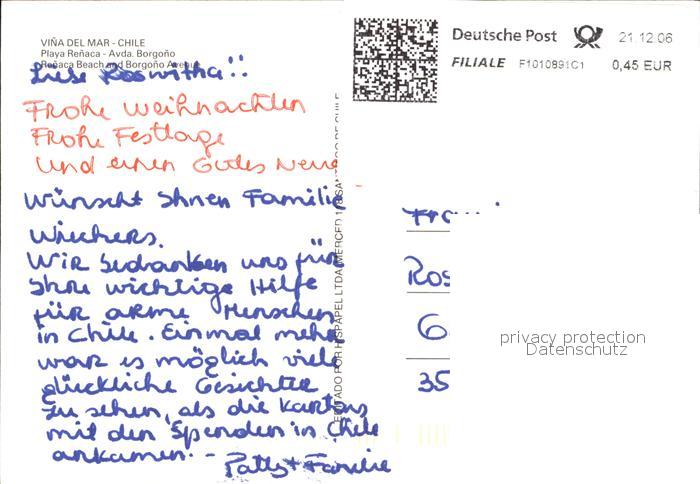 VIÑA DEL MAR - CHILE
Playa Reñaca - Avda. Borgoño
Reñaca Beach and Borgoño Avenue
Liebe Roswitha!!
Frohe Weihnachten
Frohe Festtage
und einen Gutes Neue
wünscht Ihnen Familie
Wiechers.
Wir bedanken uns für
Ihre wichtige Hilfe
für arme Menschen
in Chile. Einmal mehr
war es möglich viele
glückliche Gesichter
zu sehen, als die Kartons
mit den Spenden in Chile
ankamen. -
Patty + Familie
Deutsche Post
21.12.06
FILIALE F1010891C1 0,45 EUR
Ros
6
35
privacy protection
Datenschutz